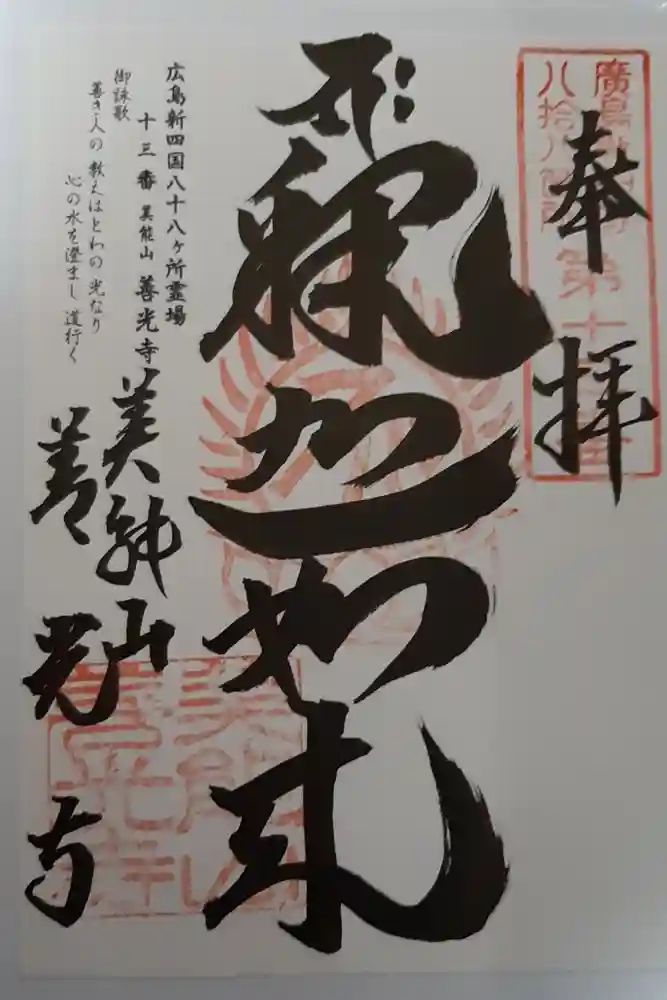 奉拝
八拾八箇所
釈迦如来
広島新四国八十八ヶ所霊場
十三番 美能山 善光寺
御詠歌
善き人の 教えはとわの光なり
心の水を澄まし 道行く
美能山
善光寺
美能山
善光寺